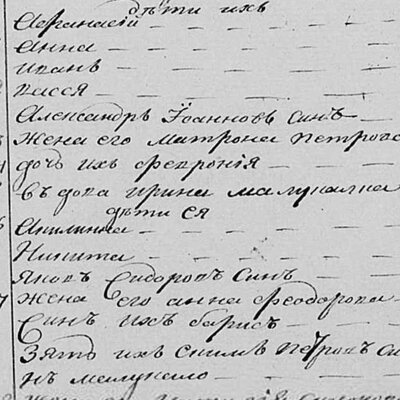 дѣти ихъ
Афанасій
Анна
Иванъ
Васся
Александръ Іоанновъ синъ
Жена его Матрона Петрова
дочь ихъ Февронія
вдова Ирина
дѣти ея
Акилина
Никита
Яковъ Сидоровъ синъ
Жена его Анна Феодорова
синъ ихъ Борисъ
Зять ихъ Петровъ